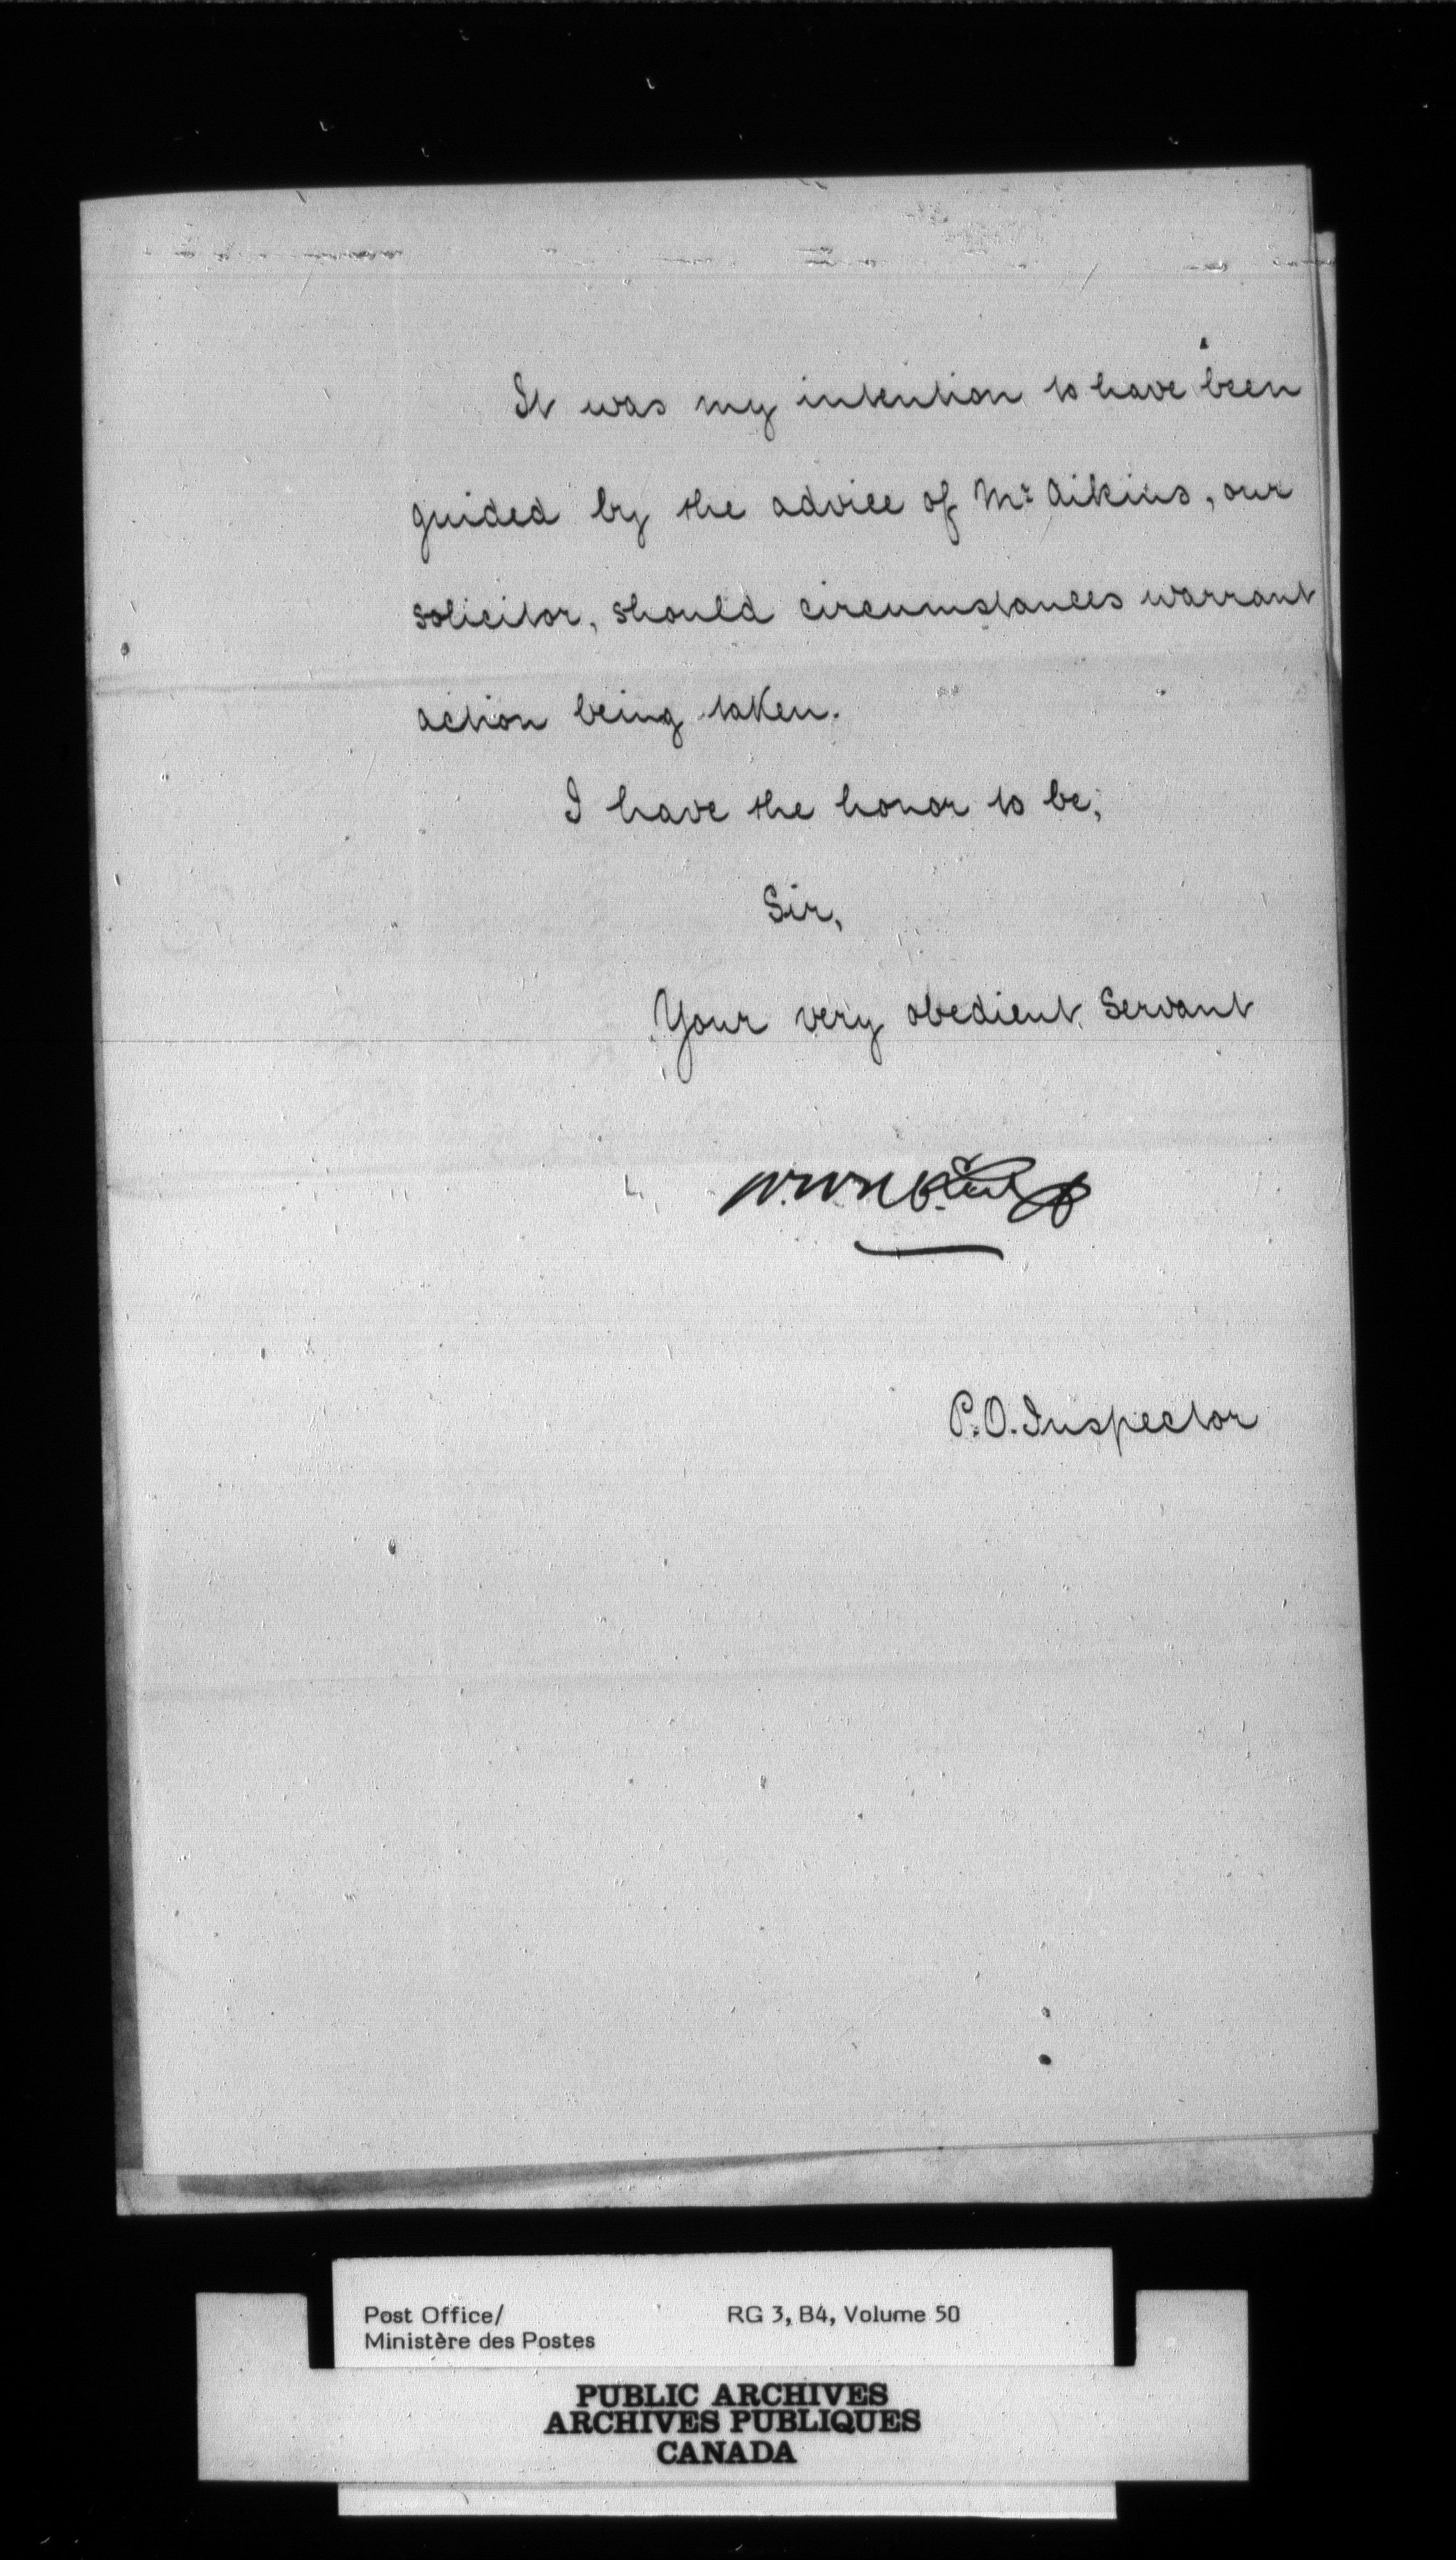 It was my intention to have been
guided by the advice of Mr. Aikins, our
solicitor, should circumstances warrant
action being taken.
I have the honor to be,
Sir,
Your very obedient Servant
P.O. Inspector
Post Office/
Ministère des Postes
RG 3, B4, Volume 50
PUBLIC ARCHIVES
ARCHIVES PUBLIQUES
CANADA